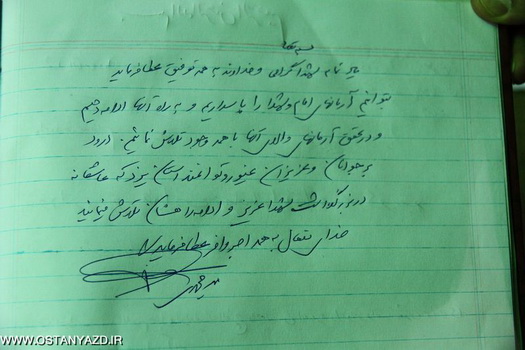 بسمه تعالی
یاد نامه شهدا گرامی و خداوند به همه توفیق عطا فرماید
بتوانیم آرمانهای امام و شهدا را پاسداریم و به راه آنها ادامه دهیم
و در تحقق آرمانهای والای آنها با همه وجود تلاش نمائیم. درود
بر جوانان و عزیزان غیور و توانمند استان یزد که عاشقانه
در بزرگداشت شهدا عزیز و ادامه راهشان تلاش می‌نمایند
خدای متعال به همه اجر وافر عطا فرماید
WWW.OSTANYAZD.IR